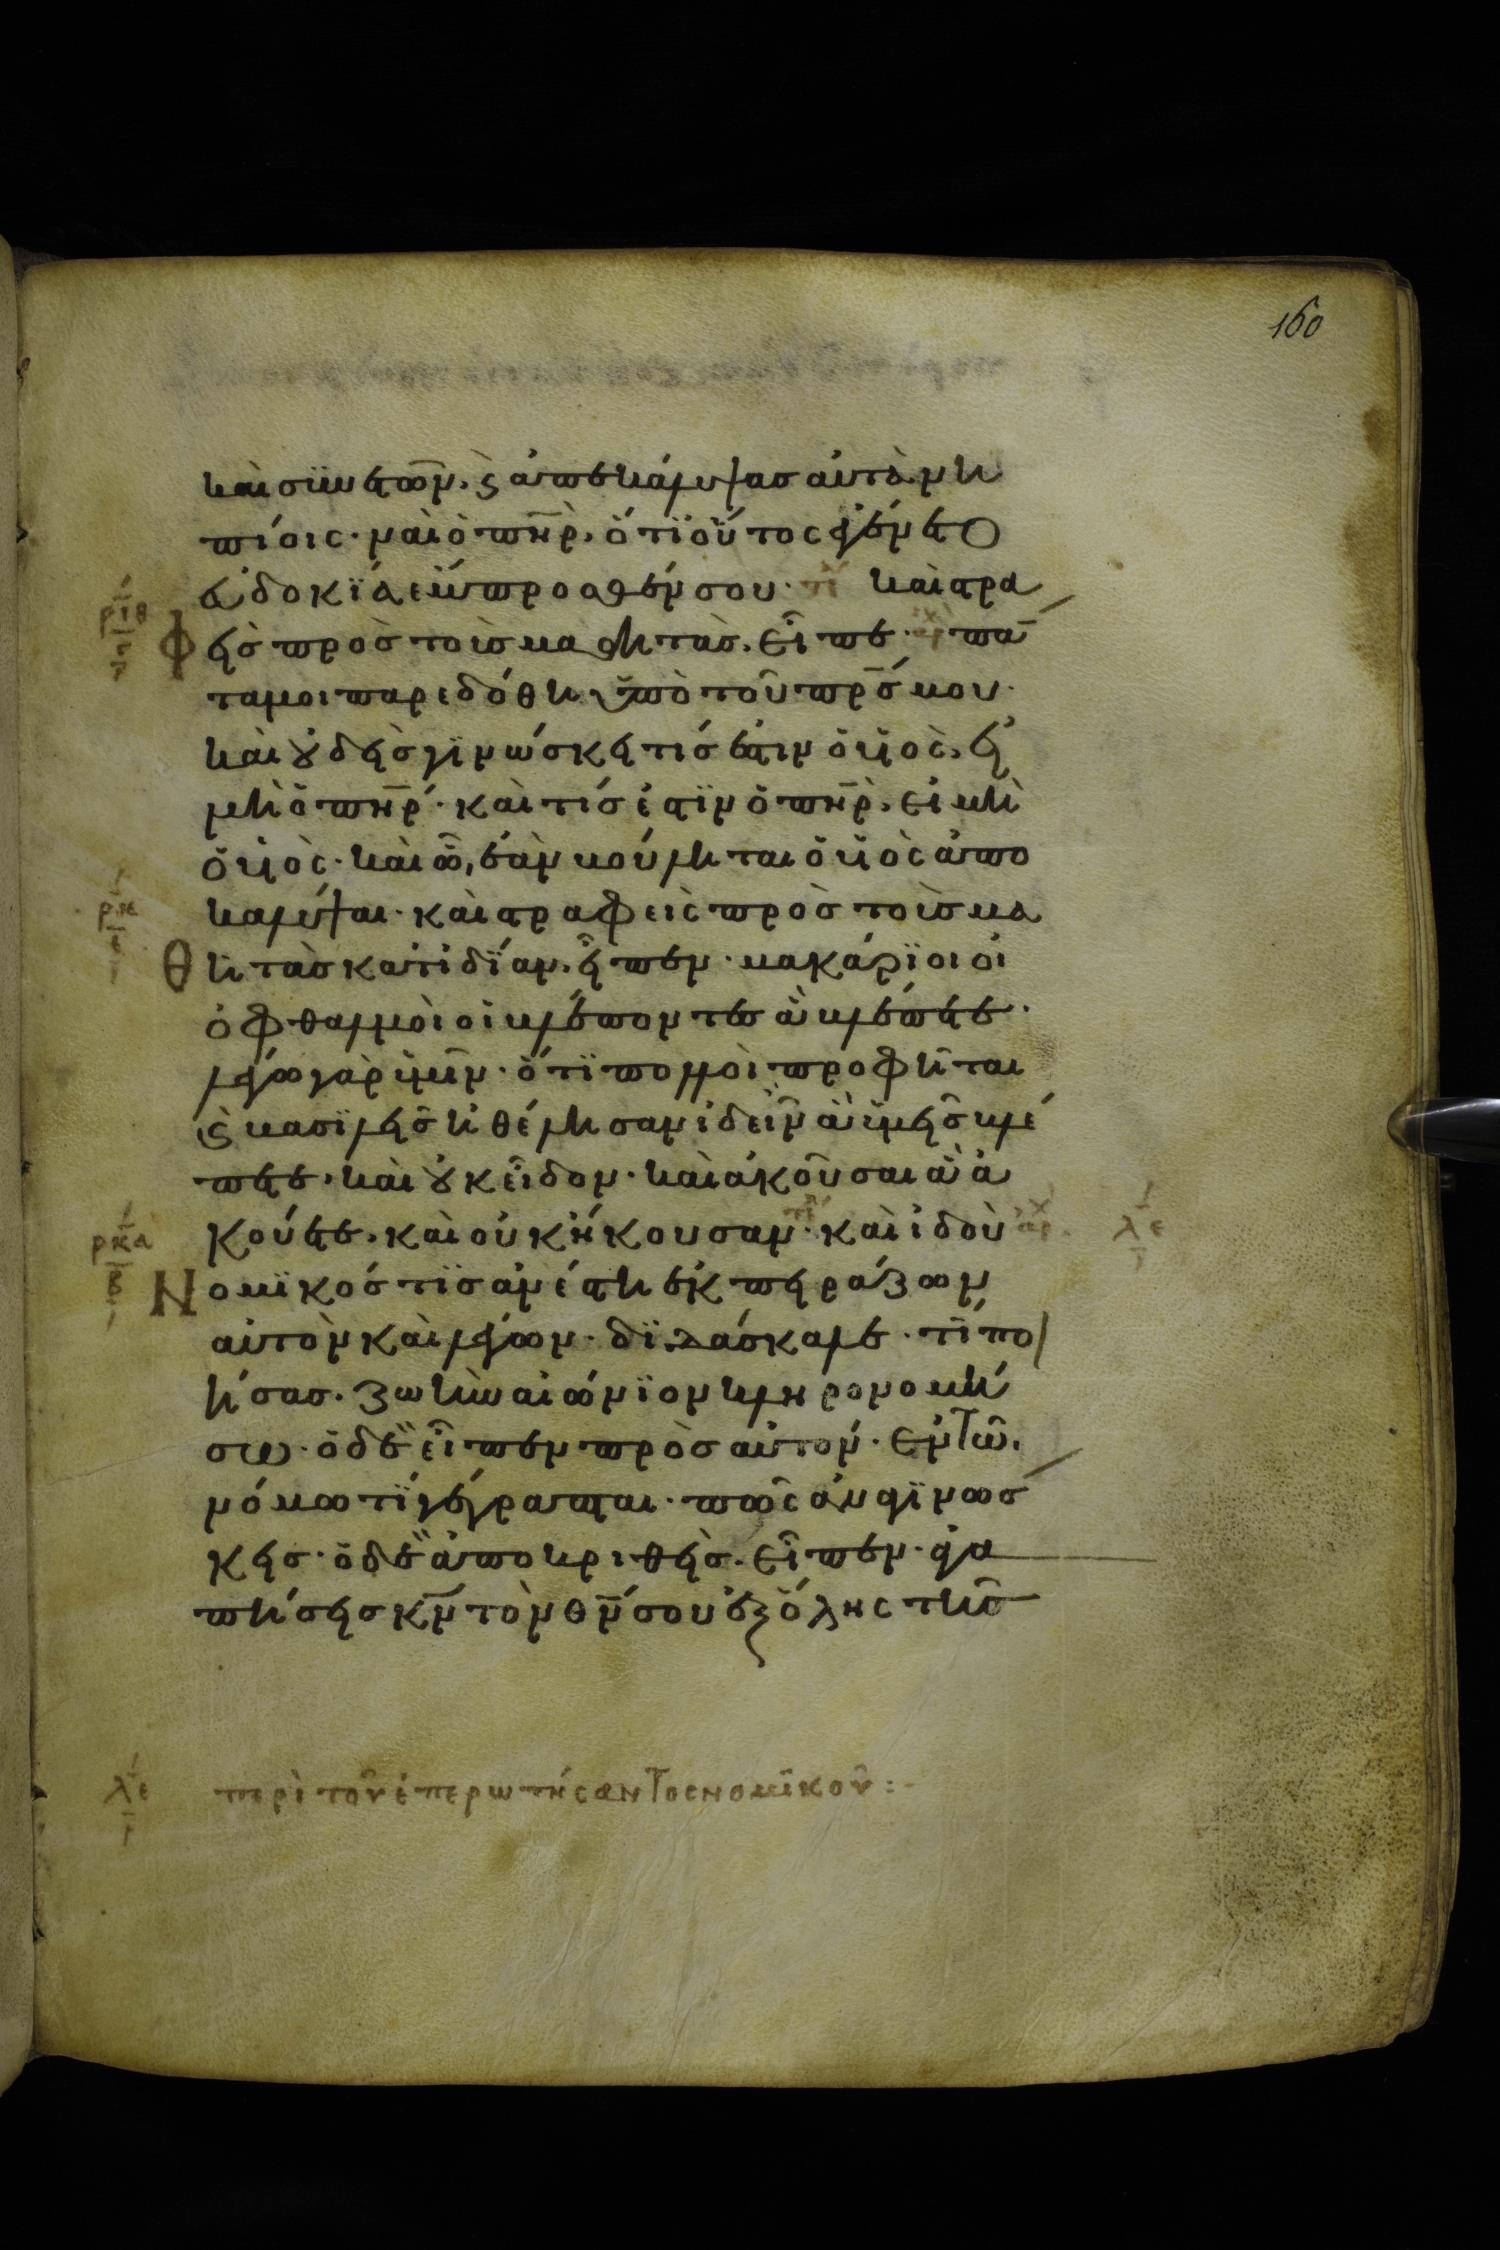 160
καὶ συνετῶν. ϛ ἀπεκάλυψας αὐτὰ νη
πίοις· ναὶ ὁ π̅η̅ρ̅. ὅτϊ οὕτος ἐγένετο
εὐδοκϊα ἔμπροσθέν σου· τ̅ε̅ καὶ στρα
ρ̅ι̅θ̅ γ̅
φεὶς πρὸς τοὺς μαθητὰς. εἶπε· ἀρχ πά
ντα μοι παρεδόθη ὑπὸ τοῦ π̅ρ̅ς̅ μου·
καὶ οὐδεὶς γϊνώσκει τίς ἐστιν ὁ υἱὸς. εἰ
μὴ ὁ π̅η̅ρ̅· καὶ τίς ἐστϊν ὁ π̅η̅ρ̅. εἰ μὴ
ὁ υἱὸς· καὶ ᾧ, ἐὰν βούληται ὁ υἱὸς ἀπο
ρ̅κ̅ ε̅
καλύψαι· καὶ στραφεὶς πρὸς τοὺς μα
θητὰς κατιδϊαν. εἶπεν· μακάρϊοι οἱ
ὀφθαλμοὶ οἱ βλέποντες ἃ βλέπετε·
λέγω γὰρ ὑμῖν· ὅτϊ πολλοὶ προφῆται
ϛ βασϊλεῖς ἠθέλησαν ἰδεῖν ἃ ὑμεῖς βλέ
πετε· καὶ οὐκ εἶδον· καὶ ἀκοῦσαι ἃ ἀ
κούετε. καὶ οὐκ ἤκουσαν· τε καὶ ἰδοὺ ἀρχ λ̅ε̅
ρ̅κ̅α̅ β̅
Νομϊκός τϊς ἀνέστη ἐκπειράζων
αὐτὸν καὶ λέγων· δϊδάσκαλε· τί πο
ιήσας. ζωὴν αἰώνϊον κληρονομή
σω· ὁ δὲ εἶπεν πρὸς αὐτόν· ἐν τῶ.
νόμω τϊ γέγραπται· πῶς ἀναγϊνώσ
κεις· ὁ δὲ ἀποκριθεὶς. εἶπεν· ἀγα
πήσεις κ̅ν̅ τὸν θ̅ν̅ σου ἐξ ὅλης τῆς
λ̅ε̅ περὶ τοῦ ἐπερωτήσαντος νομικοῦ:-